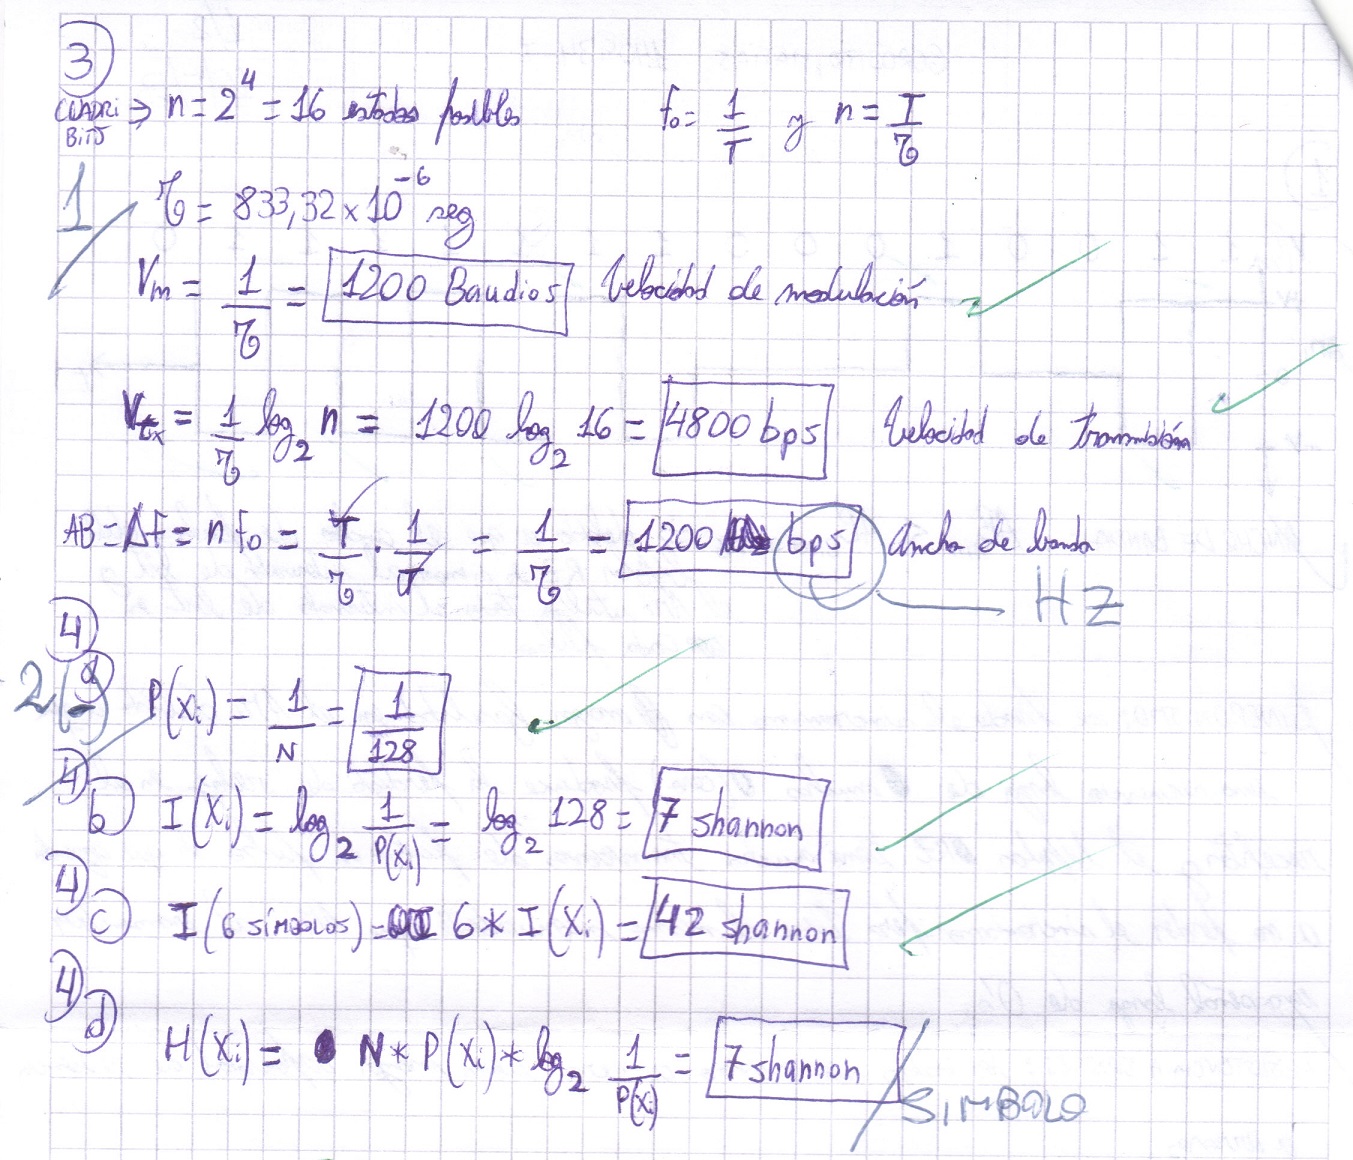 3
CUADRI BITS ⇒ n = 2^4 = 16 estados posibles    f₀ = 1/T y n = T/τ
1    τ = 833,32 × 10^-6 seg
Vm = 1/τ = 1200 Baudios    Velocidad de modulación
Vtx = 1/τ log₂ n = 1200 log₂ 16 = 4800 bps    Velocidad de transmisión
AB = Δf = n f₀ = T/τ . 1/T = 1/τ = 1200 bps    Ancho de banda
HZ
4
2(-)    a    P(Xi) = 1/N = 1/128
4) b)    I(Xi) = log₂ 1/P(Xi) = log₂ 128 = 7 shannon
4) c)    I(6 SÍMBOLOS) = 6 * I(Xi) = 42 shannon
4) d)    H(Xi) = N * P(Xi) * log₂ 1/P(Xi) = 7 shannon / SIMBOLO